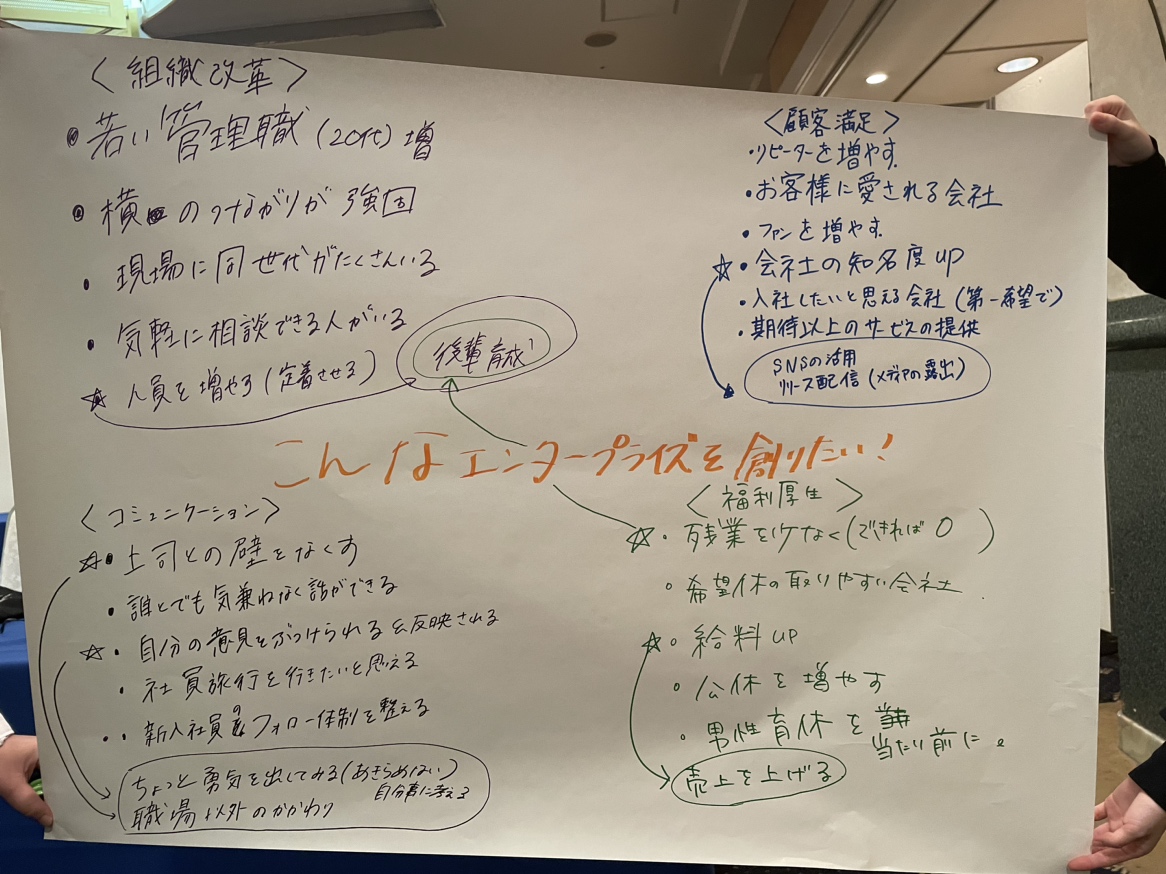 〈組織改革〉
• 若い管理職(20代)増
• 横のつながりが強固
• 現場に同世代がたくさんいる
• 気軽に相談できる人がいる
☆ 人員を増やす(定着させる)
後輩育成
〈顧客満足〉
・リピーターを増やす
• お客様に愛される会社
• ファンを増やす
☆• 会社の知名度up
• 入社したいと思える会社(第一希望で)
• 期待以上のサービスの提供
SNSの活用
リリース配信(メディアの露出)
こんなエンタープライズを創りたい!
〈コミュニケーション〉
☆• 上司との壁をなくす
• 誰とでも気兼ねなく話ができる
☆• 自分の意見をぶつけられる&反映される
• 社員旅行を行きたいと思える
•• 新入社員フォロー体制を整える
ちょっと勇気を出してみる(あきらめない)
自分事に考える
職場以外のかかわり
〈福利厚生〉
☆• 残業を少なく(できれば0)
• 希望休の取りやすい会社
☆• 給料UP
• 公休を増やす
• 男性育休を
当たり前に。
売上を上げる